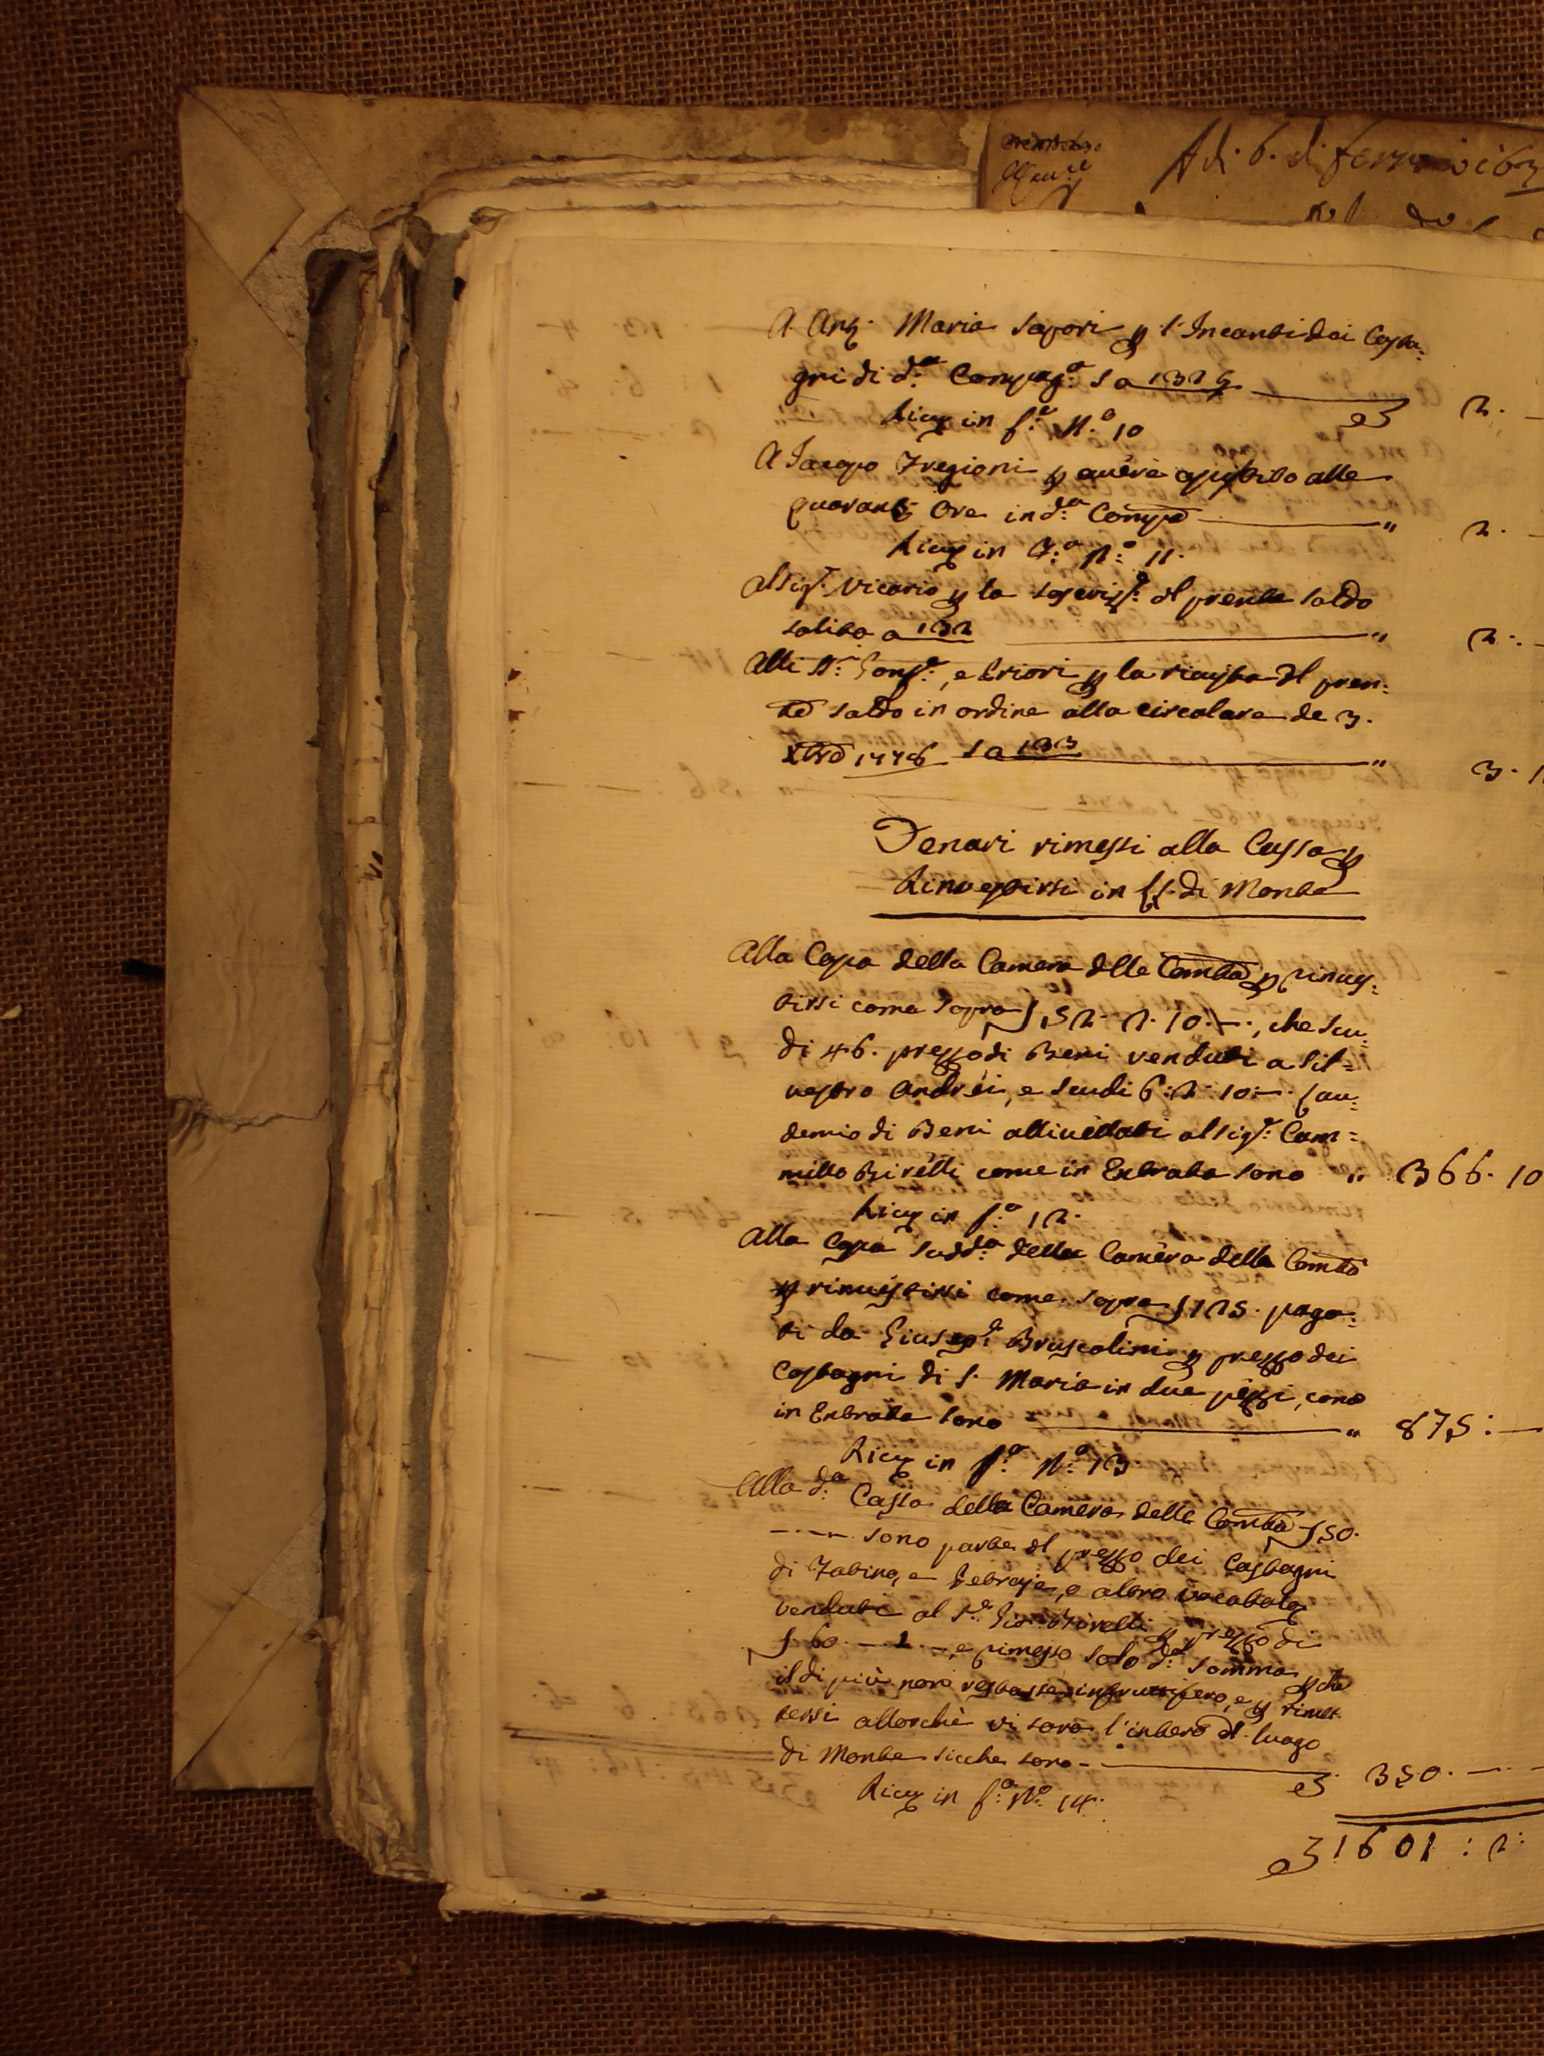 Adi 6. di ferraio 163
A Ang. Maria Sapori p l'Incanti dei Casta:
gni di d.a Compag.a s a 132 2. —
Ricev in f.a N.o 10
A Jacopo Fregioni p avere assistito alle
quarant Ore in d.a Comp.a — " 2. —
Ricev in F.a N.o 11.
Al Sig.r Vicario p la soscriz.e del presente saldo
solita a 132 — " 2. —
Alli SS.ri Gonf.e, e Priori p la rivista del presen:
te saldo in ordine alla circolare de 3.
Xbre 1776 s a 133 — " 3. 1
Denari rimessi alla Cassa p
Rinvestirsi in LL. di Monte
Alla Cassa della Camera delle Comtà p rinves:
tirsi come sopra ∫ 52. 2. 10. —., che scu:
di 46. prezzo di Beni venduti a Sil=
vestro Andrei, e scudi 6: 2: 10: —. lau:
demio di Beni allivellati al Sig.r Cam=
millo Biretti come in Entrata sono " 366. 10
Ricev in f.a 12.
Alla Cassa sudd.a della Camera delle Comtà
p rinvestirsi come sopra ∫ 125. paga:
ti da Giusep.e Bruscolini p prezzo dei
Castagni di S. Maria in due pezzi, come
in Entrata sono — " 875: —
Ricev in f.a N.o 13
Alla d.a Cassa della Camera delle Comtà ∫ 50.
—.—.— sono parte del prezzo dei Castagni
di e altro vocabolo
venduti al S.r Gio p prezzo di
∫ 60. — 1. —, e rimesso solo d.a somma p che
il di più non restasse infruttifero, e p rimet
tersi allorchè vi sarà l'intero del luogo
di Monte sicche sono — 350. — —
Ricev in f.a N.o 14.
1601: 2: